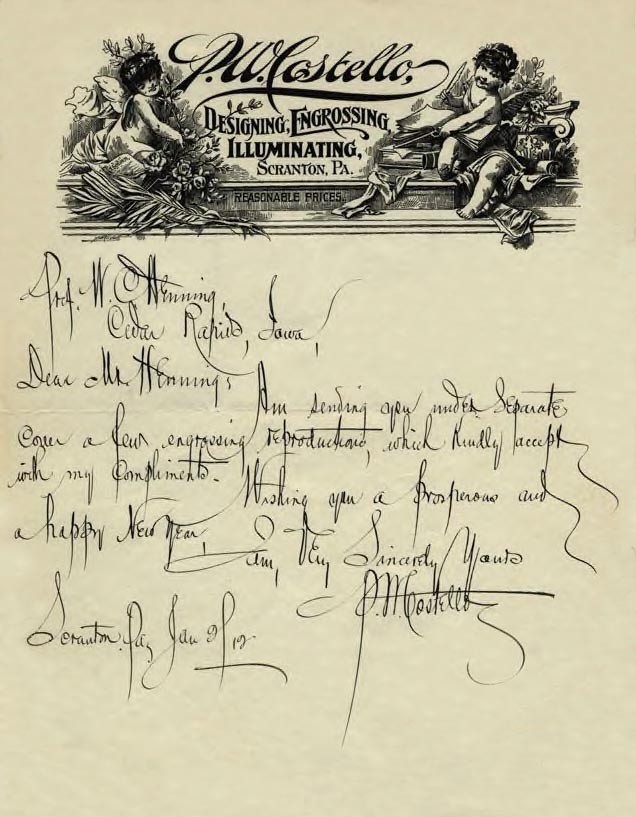 P.W. Costello,
DESIGNING, ENGROSSING,
ILLUMINATING,
SCRANTON, PA.
REASONABLE PRICES.
Prof. W. C. Henning,
Cedar Rapids, Iowa,
Dear Mr. Henning: Am sending you under separate
cover a few engrossing reproductions, which kindly accept
with my compliments. Wishing you a prosperous and
a happy New Year,
I am, Very Sincerely Yours
P.W. Costello
Scranton, Pa, Jan 2/12